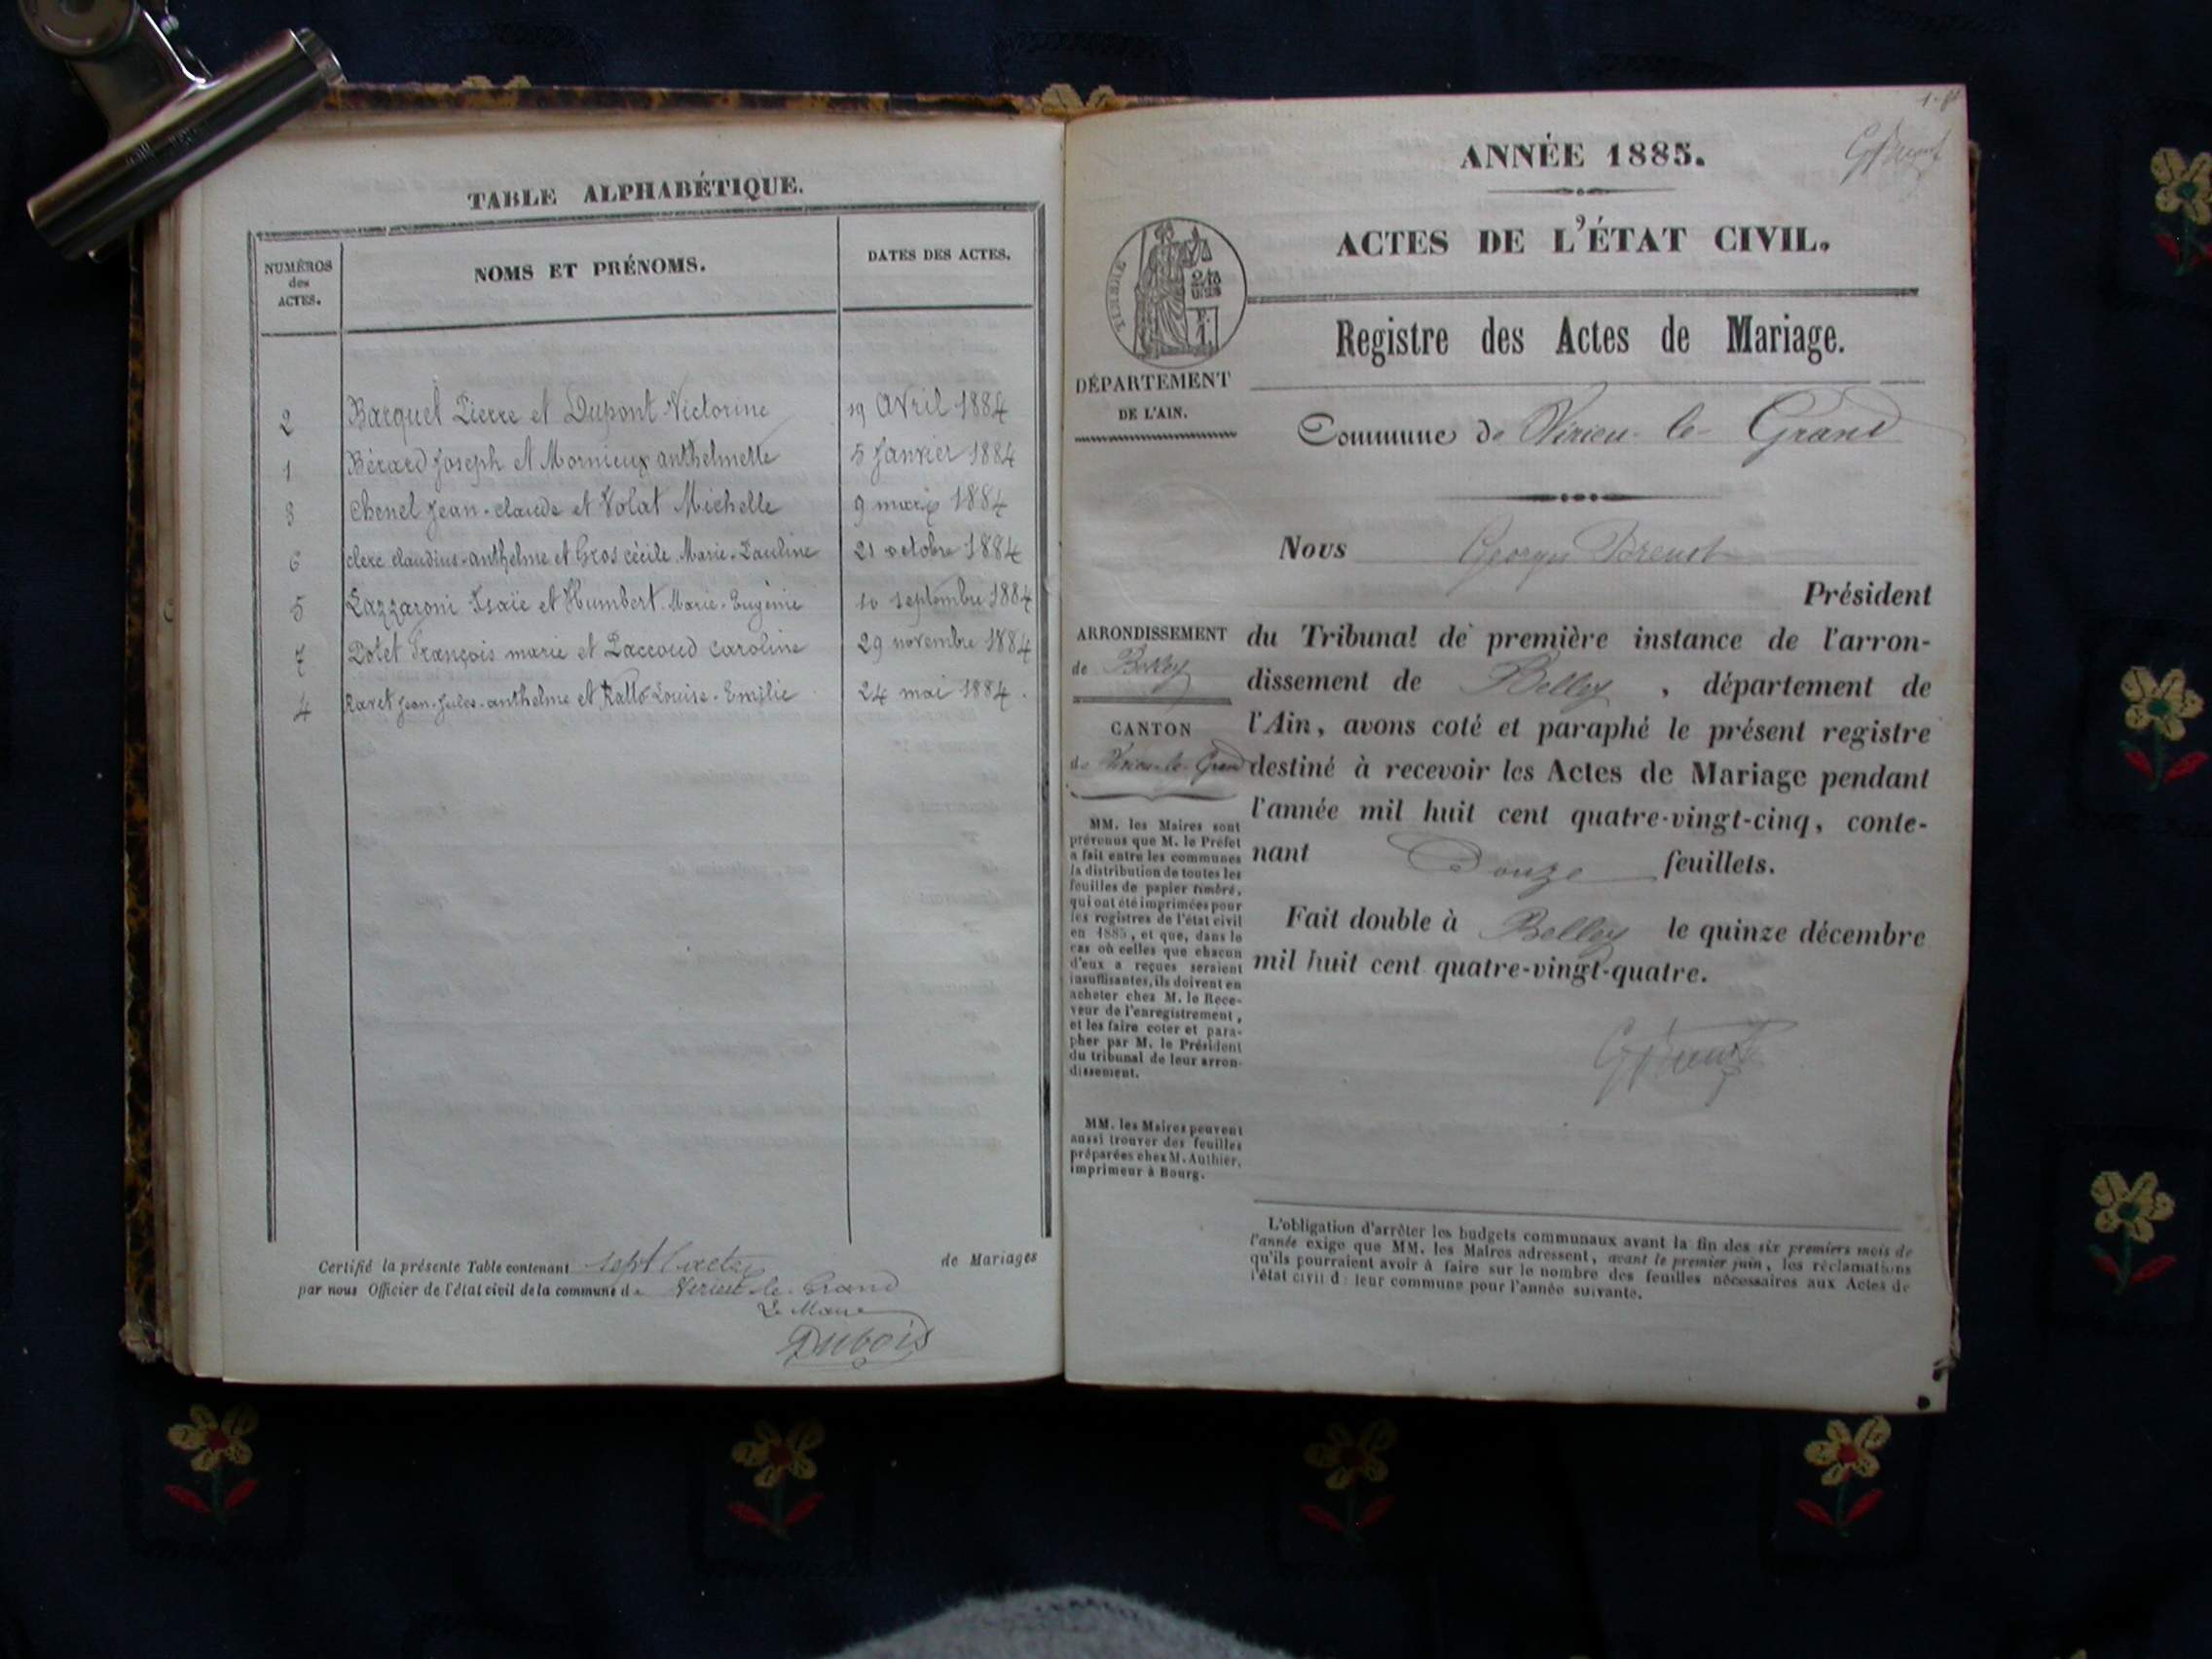 TABLE ALPHABÉTIQUE.
NUMÉROS
des
ACTES.
NOMS ET PRÉNOMS.
DATES DES ACTES.
2 Barquet Pierre et Dupont Victorine 19 Avril 1884
1 Bérard Joseph et Mornieux anthelmette 5 Janvier 1884
3 Chenel Jean-claude et Volat Michelle 9 1884
6 clerc claudius-anthelme et Gros cécile Marie-Pauline 21 octobre 1884
5 Lazzaroni Isaïe et Humbert Marie-Eugénie 10 septembre 1884
7 Polet François marie et Paccoud Caroline 29 novembre 1884
4 Ravet Jean-Jules-anthelme et Louise-Emilie 24 mai 1884.
Certifié la présente Table contenant sept actes de Mariages
par nous Officier de l'état civil de la commune de Virieu-le-Grand
Le Maire
Dubois
ANNÉE 1885.
ACTES DE L'ÉTAT CIVIL.
TIMBRE
Registre des Actes de Mariage.
DÉPARTEMENT
DE L'AIN.
Commune de Virieu-le-Grand
Nous Georges
Président
du Tribunal de première instance de l'arron-
dissement de Belley, département de
l'Ain, avons coté et paraphé le présent registre
destiné à recevoir les Actes de Mariage pendant
l'année mil huit cent quatre-vingt-cinq, conte-
nant Douze feuillets.
Fait double à Belley le quinze décembre
mil huit cent quatre-vingt-quatre.
ARRONDISSEMENT
de Belley
CANTON
de Virieu-le-Grand
MM. les Maires sont
prévenus que M. le Préfet
a fait entre les communes
la distribution de toutes les
feuilles de papier timbré,
qui ont été imprimées pour
les registres de l'état civil
en 1885, et que, dans le
cas où celles que chacun
d'eux a reçues seraient
insuffisantes, ils doivent en
acheter chez M. le Rece-
veur de l'enregistrement,
et les faire coter et para-
pher par M. le Président
du tribunal de leur arron-
dissement.
MM. les Maires peuvent
aussi trouver des feuilles
préparées chez M. Authier,
imprimeur à Bourg.
L'obligation d'arrêter les budgets communaux avant la fin des six premiers mois de
l'année exige que MM. les Maires adressent, avant le premier juin, les réclamations
qu'ils pourraient avoir à faire sur le nombre des feuilles nécessaires aux Actes de
l'état civil de leur commune pour l'année suivante.